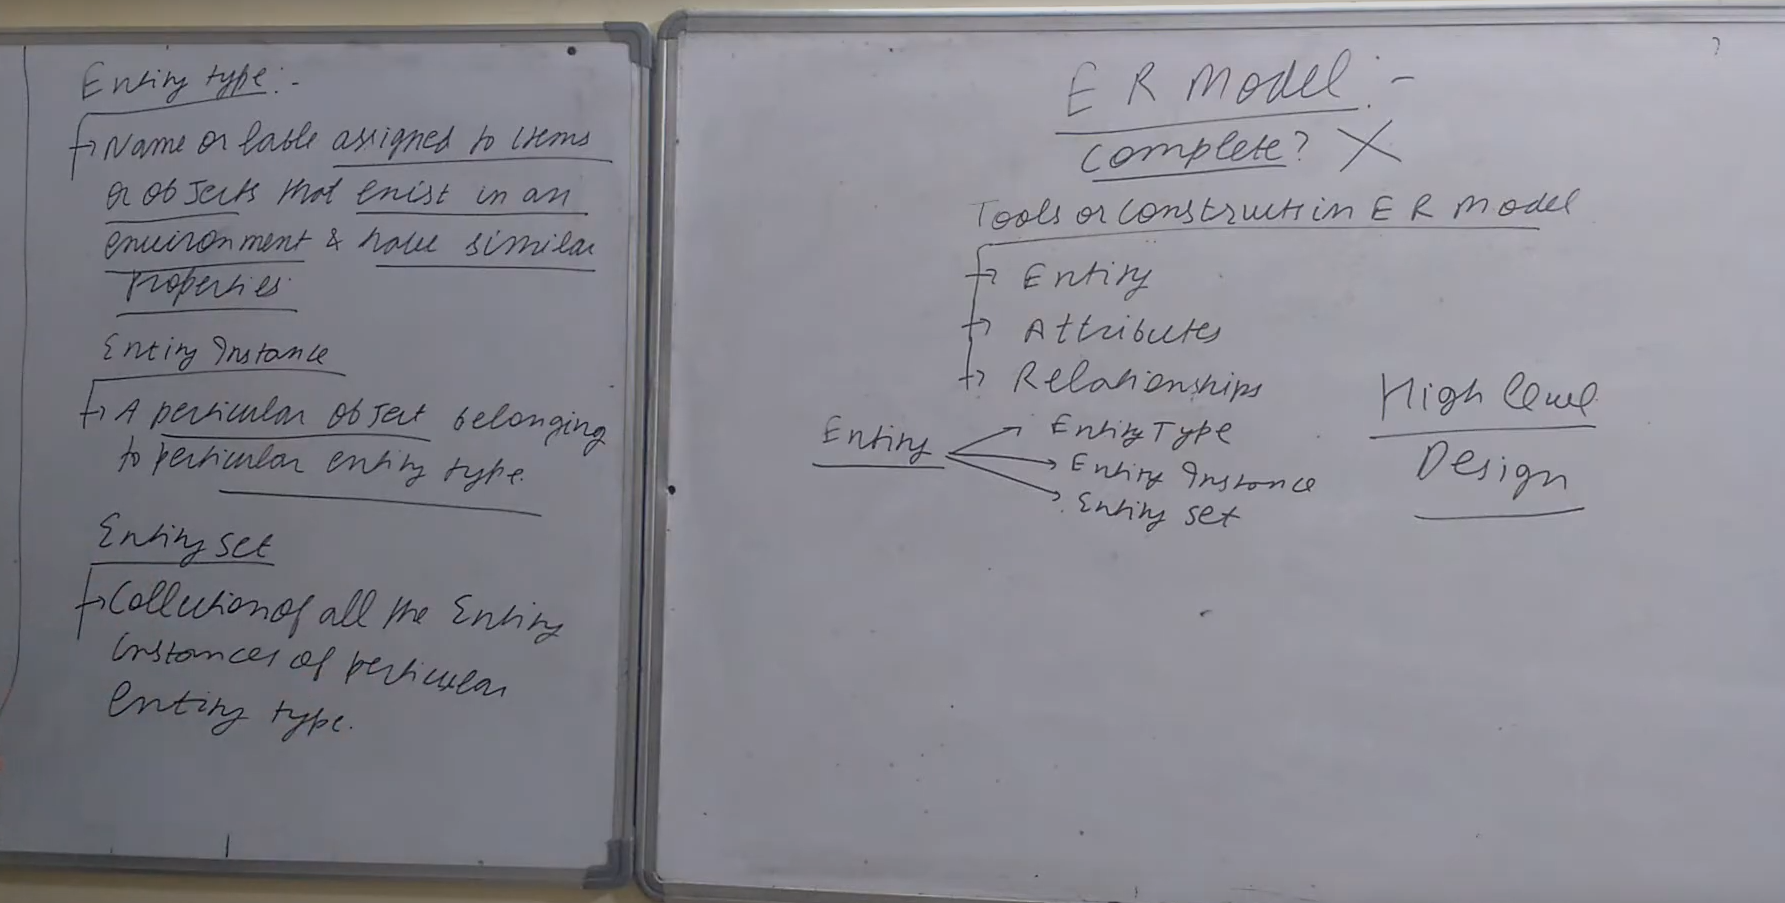 Entity type:-
→ Name or lable assigned to items
or objects that exist in an
environment & have similar
properties.
Entity Instance
→ A perticular object belonging
to perticular entity type.
Entity set
→ Collection of all the Entity
instances of perticular
entity type.
ER Model:-
Complete? ✗
Tools or Construct in ER Model
→ Entity
→ Attributes
→ Relationships
Entity
→ Entity Type
→ Entity Instance
→ Entity set
High level
Design